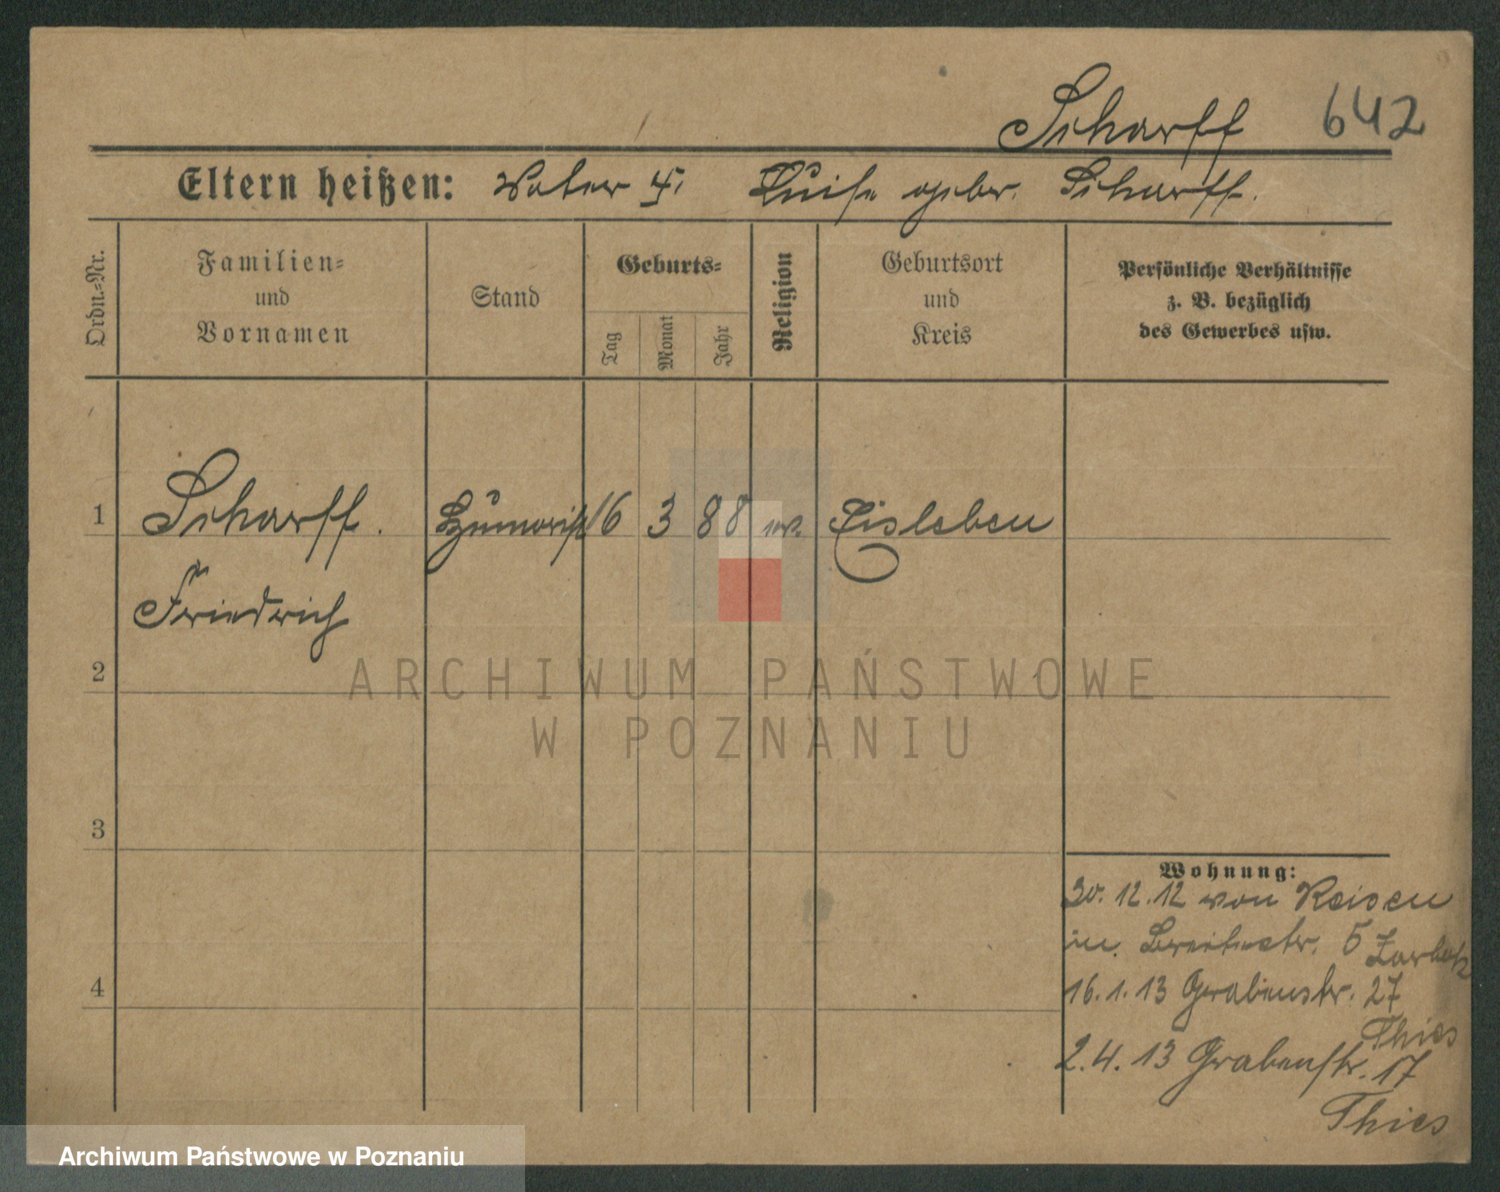 Scharff 642
Eltern heißen: Vater †. Luise gebr. Scharff.
Ordn.-Nr.
Familien-
und
Vornamen
Stand
Geburts-
Tag
Monat
Jahr
Religion
Geburtsort
und
Kreis
Persönliche Verhältnisse
z. B. bezüglich
des Gewerbes usw.
1 Scharff. Humorist 16 3 88 ev. Eisleben
Friedrich
2
3
4
Wohnung:
30. 12. 12 von Reisen
in. Breitestr. 5
16. 1. 13 Grabenstr. 27
Thies
2. 4. 13 Grabenstr. 17
Thies
ARCHIWUM PAŃSTWOWE
W POZNANIU
Archiwum Państwowe w Poznaniu